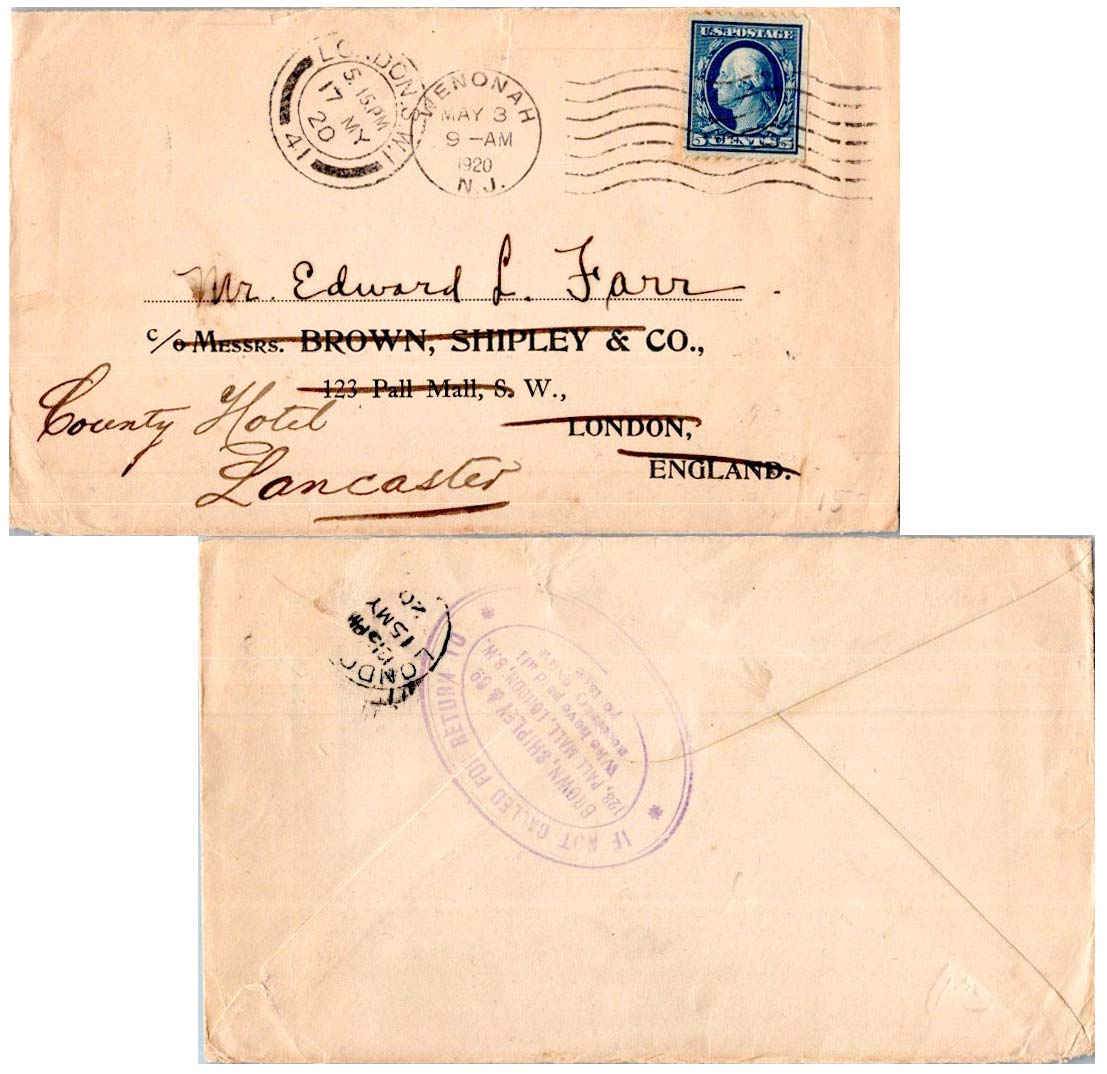 U.S. POSTAGE
5 CENTS 5
LONDON. S.W.1
5. 15. PM
17 MY
20
41
WENONAH
MAY 3
9 - AM
1920
N.J.
Mr. Edward L. Farr
c/o MESSRS. BROWN, SHIPLEY & CO.,
123 Pall Mall, S. W.,
LONDON,
ENGLAND.
County Hotel
Lancaster
15
LONDO
15 MY
20
* IF NOT CALLED FOR RETURN TO *
BROWN, SHIPLEY & CO
PALL MALL, LONDON S.W.
Who have paid all